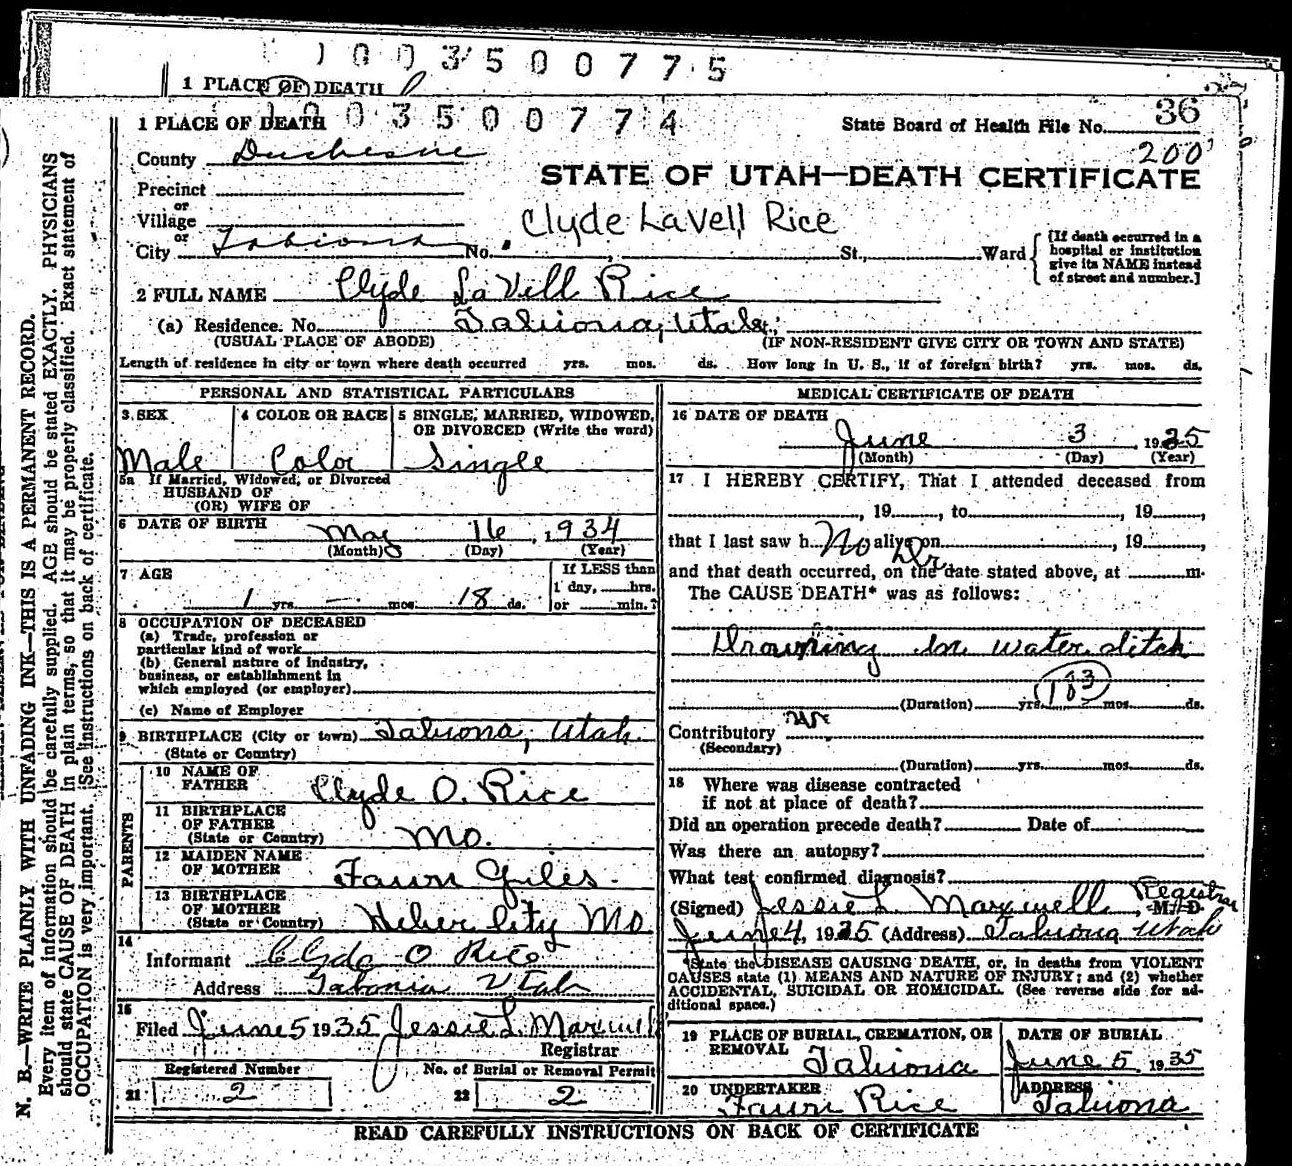 1003500775
1 PLACE OF DEATH
1003500774
1 PLACE OF DEATH
State Board of Health File No. 36
200
County Duchesne
STATE OF UTAH—DEATH CERTIFICATE
Precinct
or
Village
Clyde LaVell Rice
or
City Tabiona No. St., Ward
[If death occurred in a hospital or institution give its NAME instead of street and number.]
2 FULL NAME Clyde LaVell Rice
(a) Residence. No. Tabiona, Utah
(USUAL PLACE OF ABODE) (IF NON-RESIDENT GIVE CITY OR TOWN AND STATE)
Length of residence in city or town where death occurred yrs. mos. ds. How long in U. S., if of foreign birth? yrs. mos. ds.
PERSONAL AND STATISTICAL PARTICULARS
3 SEX 4 COLOR OR RACE 5 SINGLE, MARRIED, WIDOWED, OR DIVORCED (Write the word)
Male Color Single
5a If Married, Widowed, or Divorced
HUSBAND OF
(OR) WIFE OF
6 DATE OF BIRTH
May 16, 1934
(Month) (Day) (Year)
7 AGE If LESS than
1 day, hrs.
1 yrs. — mos. 18 ds. or min.?
8 OCCUPATION OF DECEASED
(a) Trade, profession or
particular kind of work
(b) General nature of industry,
business, or establishment in
which employed (or employer)
(c) Name of Employer
9 BIRTHPLACE (City or town) Tabiona, Utah
(State or Country)
PARENTS
10 NAME OF
FATHER Clyde O. Rice
11 BIRTHPLACE
OF FATHER
(State or Country) Mo.
12 MAIDEN NAME
OF MOTHER Fawn Giles
13 BIRTHPLACE
OF MOTHER
(State or Country) Heber City Mo
14
Informant Clyde O Rice
Address Tabonia Utah
15
Filed June 5 1935 Jessie L. Maxwell
Registrar
Registered Number No. of Burial or Removal Permit
21 2 22 2
MEDICAL CERTIFICATE OF DEATH
16 DATE OF DEATH
June 3, 1935
(Month) (Day) (Year)
17 I HEREBY CERTIFY, That I attended deceased from
, 19, to, 19,
that I last saw h No alive on, 19,
Dr
and that death occurred, on the date stated above, at m.
The CAUSE DEATH* was as follows:
Drowning in water ditch
183
(Duration) yrs. mos. ds.
Contributory
(Secondary)
(Duration) yrs. mos. ds.
18 Where was disease contracted
if not at place of death?
Did an operation precede death? Date of
Was there an autopsy?
What test confirmed diagnosis?
(Signed) Jessie L. Maxwell, Registrar M. D.
June 4, 1935 (Address) Tabiona Utah
*State the DISEASE CAUSING DEATH, or, in deaths from VIOLENT
CAUSES state (1) MEANS AND NATURE OF INJURY; and (2) whether
ACCIDENTAL, SUICIDAL OR HOMICIDAL. (See reverse side for ad-
ditional space.)
19 PLACE OF BURIAL, CREMATION, OR
REMOVAL Tabiona
DATE OF BURIAL
June 5 1935
20 UNDERTAKER
Fawn Rice
ADDRESS
Tabiona
READ CAREFULLY INSTRUCTIONS ON BACK OF CERTIFICATE
N. B.—WRITE PLAINLY WITH UNFADING INK—THIS IS A PERMANENT RECORD.
Every item of information should be carefully supplied. AGE should be stated EXACTLY. PHYSICIANS
should state CAUSE OF DEATH in plain terms, so that it may be properly classified. Exact statement of
OCCUPATION is very important. (See instructions on back of certificate.